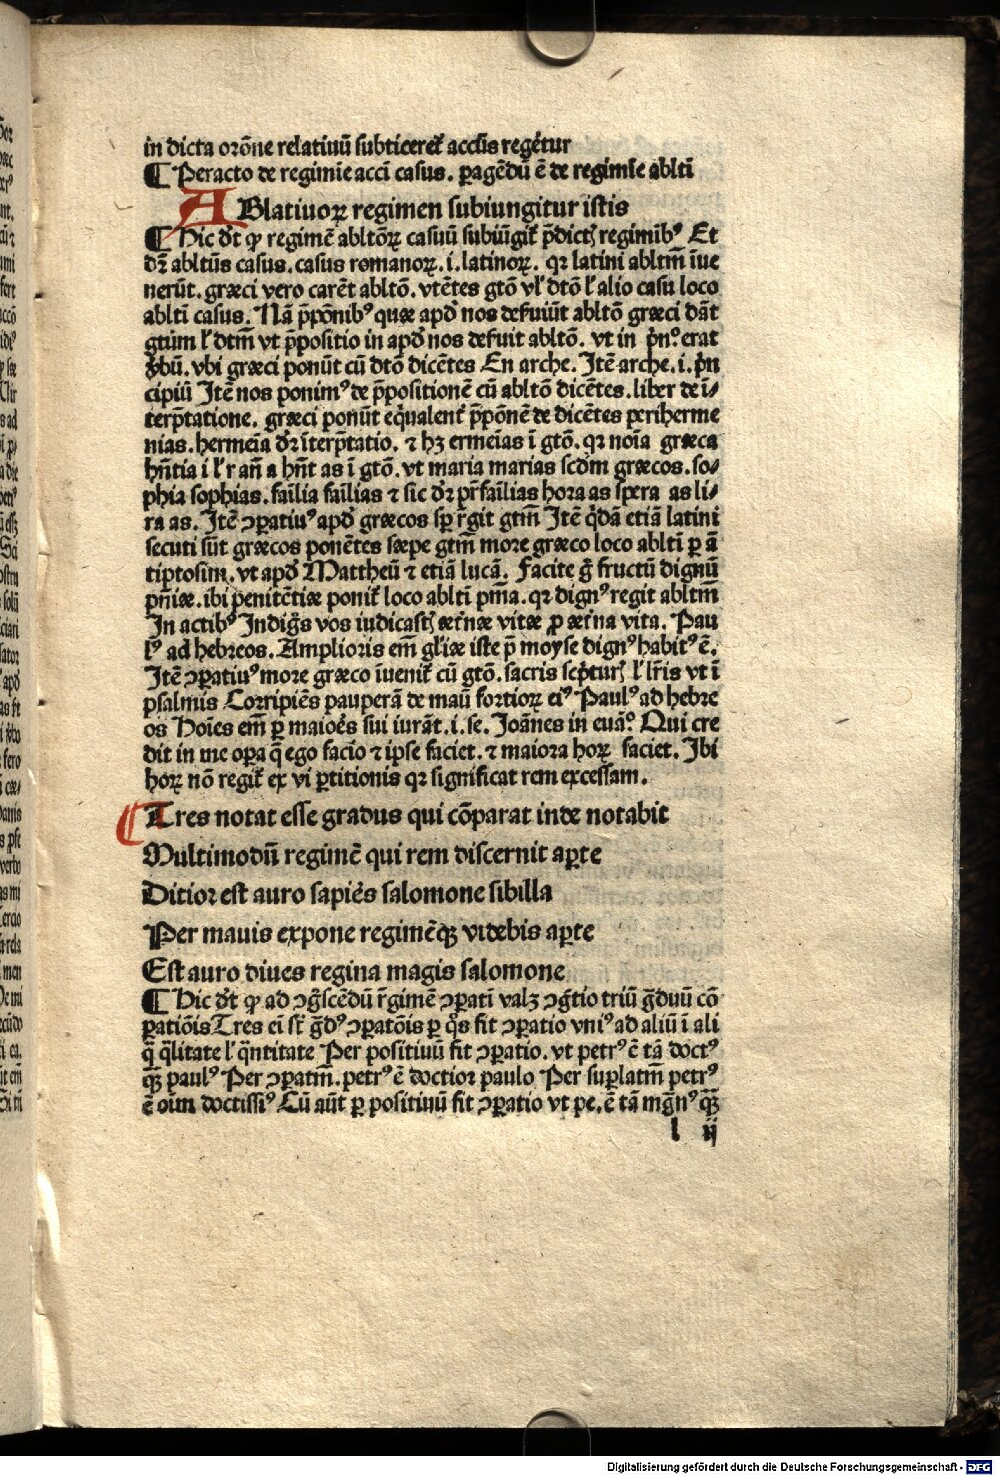 in dicta orōne relatiuū subticeret᷑ accūs regēt᷑ur
¶ Peracto de regimīe acci casus. ꝑagēdū ē de regimīe ablti
ABlatiuoꝝ regimen subiungitur istis
¶ Hic dr̄t ꝙ regimē abltōꝝ casuū subiūgit᷑ p̄dict regimibꝰ Et
dr̄ abltūs casus. casus romanoꝝ. i. latinoꝝ. qꝛ latini abltm̄ īue
nerūt. græci vero carēt abltō. vtētes gtō vl̓ dtō l̓ alio casu loco
ablti casus. Nā p̄pōnibꝰ quæ apd̓ nos deſuiūt abltō græci dāt
gtūm l̓ dtm̄ vt p̄positio in apd̓ nos deſuit abltō. vt in pͥnͦ. erat
v̓bū. vbi græci ponūt cū dtō dicētes En arche. Itē arche. i. pͥn
cipiū Itē nos ponimꝰ de p̄positionē cū abltō dicētes. liber de ī⸗
terp̄tatione. græci ponūt eq̄ualent̓ p̄pōnē de dicētes periherme
nias. hermeia dr̄ īterp̄tatio. ⁊ hꝫ ermeias ī gtō. qꝛ noīa græca
hn̄tia i l̓ r an̄ a hn̄t as ī gtō. vt maria marias scd̓m græcos. so⸗
phia sophias. faīlia faīlias ⁊ sic dr̄ pr̄faīlias hora as spera as li⸗
ra as. Itē ↄꝑatiuꝰ apd̓ græcos sꝑ r̄git gtm̄ Itē q̄dā etiā latini
secuti sūt græcos ponētes sæpe gtm̄ more græco loco ablti ꝑ ā
tiptosim. vt apd̓ Mattheū ⁊ etiā lucā. Facite g̊ fructū dignū
pn̄iæ. ibi penitētiæ ponit᷑ loco ablti pm̄a. qꝛ dignꝰ regit abltm̄
In actibꝰ Indiḡs vos iudicast æt̓næ vitæ ꝓ æt̓na vita. Pau
lꝰ ad hebreos. Amplioris em̄ gl̓iæ iste p̄ moyse dignꝰ habitꝰ ē.
Itē ↄꝑatiuꝰ more græco īuenit᷑ cū gtō. sacris scptur l̓ lr̄is vt ī
psalmis Corripiēs pauperā de maū fortioꝝ eiꝰ Paulꝰ ad hebre
os Hoīes em̄ ꝑ maioēs sui iurāt. i. se. Ioānes in euāͦ. Qui cre
dit in me oꝑa q̄ ego facio ⁊ ipse faciet. ⁊ maiora hoꝝ faciet. Ibi
hoꝝ nō regit᷑ ex vi ꝑtitionis qꝛ significat rem excessam.
Tres notat esse gradus qui cōparat inde notabit
Multimodū regimē qui rem discernit aꝑte
Ditior est auro sapiēs salomone sibilla
Per mauis expone regimēqꝫ videbis aꝑte
Est auro diues regina magis salomone
¶ Hic dr̄t ꝙ ad ↄḡscēdū r̄gimē ↄꝑati valꝫ ↄḡtio triū ḡduū cō
ꝑatiōis Tres ei st̄ ḡdꝰ ↄꝑatōis ꝑ q̊s fit ↄꝑatio vniꝰ ad aliū ī ali
q̄ q̄litate l̓ q̄ntitate Per positiuū fit ↄꝑatio. vt petrꝰ ē tā doctꝰ
qꝫ paulꝰ Per ↄꝑatm̄. petrꝰ ē doctior paulo Per suꝑlatm̄ petrꝰ
ē oīm doctissiꝰ Cū aūt ꝑ positiuū fit ↄꝑatio vt pe. ē tā mḡnꝰ qꝫ
l ij
Digitalisierung gefördert durch die Deutsche Forschungsgemeinschaft - DFG